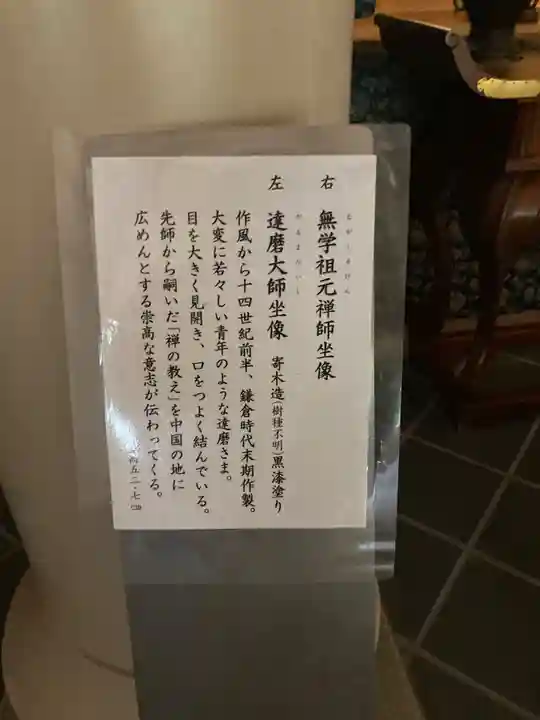 右 無学祖元禅師坐像
むがくそげん
左 達磨大師坐像 寄木造(樹種不明)黒漆塗り
だるまだいし
作風から十四世紀前半、鎌倉時代末期作製。
大変に若々しい青年のような達磨さま。
目を大きく見開き、口をつよく結んでいる。
先師から嗣いだ「禅の教え」を中国の地に
広めんとする崇高な意志が伝わってくる。
高五二・七㎝